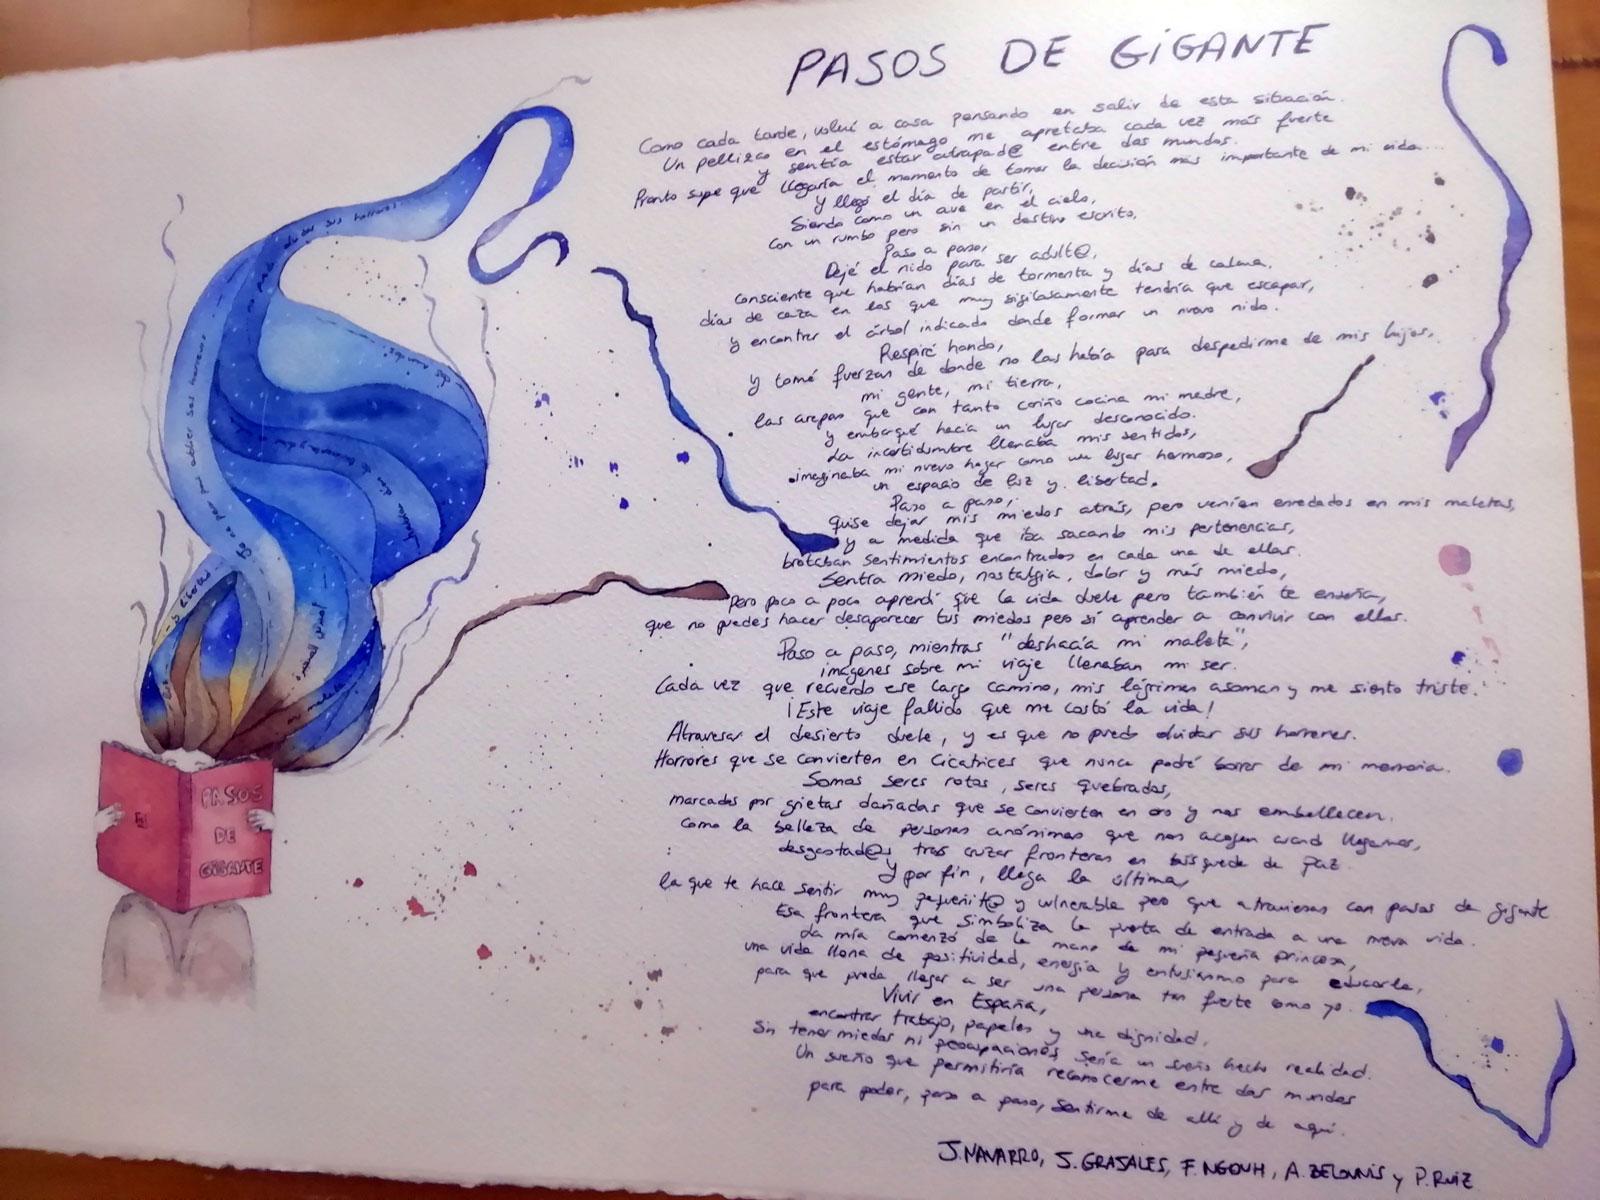 PASOS DE GIGANTE
Como cada tarde, volví a casa pensando en salir de esta situación.
Un pellizco en el estómago me apretaba cada vez más fuerte
y sentía estar atrapad@ entre dos mundos.
Pronto supe que llegaría el momento de tomar la decisión más importante de mi vida...
y llegó el día de partir,
Siendo como un ave en el cielo,
con un rumbo pero sin un destino escrito.
Paso a paso,
Dejé el nido para ser adult@,
consciente que habrían días de tormenta y días de calma,
días de caza en los que muy sigilosamente tendría que escapar,
y encontrar el árbol indicado donde formar un nuevo nido.
Respiré hondo,
y tomé fuerzas de donde no las había para despedirme de mis hijos,
mi gente, mi tierra,
las arepas que con tanto cariño cocina mi madre,
y embarqué hacia un lugar desconocido.
La incertidumbre llenaba mis sentidos,
imaginaba mi nuevo hogar como un lugar hermoso,
un espacio de luz y libertad.
Paso a paso,
quise dejar mis miedos atrás, pero venían enredados en mis maletas,
y a medida que iba sacando mis pertenencias,
brotaban sentimientos encontrados en cada una de ellas.
Sentía miedo, nostalgia, dolor y más miedo,
pero poco a poco aprendí que la vida duele pero también te enseña,
que no puedes hacer desaparecer tus miedos pero sí aprender a convivir con ellos.
Paso a paso, mientras "deshacía mi maleta",
imágenes sobre mi viaje llenaban mi ser.
Cada vez que recuerdo ese largo camino, mis lágrimas asoman y me siento triste.
¡Este viaje fallido que me costó la vida!
Atravesar el desierto duele, y es que no puedo olvidar sus horrores.
Horrores que se convierten en cicatrices que nunca podré borrar de mi memoria.
Somos seres rotos, seres quebrados,
marcados por grietas dañadas que se convierten en oro y nos embellecen.
Como la belleza de personas anónimas que nos acogen cuando llegamos,
desgastad@s tras cruzar fronteras en búsqueda de paz.
Y por fin, llega la última,
la que te hace sentir muy pequeñit@ y vulnerable pero que atraviesas con pasos de gigante
Esa frontera que simboliza la puerta de entrada a una nueva vida.
La mía comenzó de la mano de mi pequeña princesa,
una vida llena de positividad, energía y entusiasmo para educarla,
para que pueda llegar a ser una persona tan fuerte como yo.
Vivir en España,
encontrar trabajo, papeles y una dignidad,
Sin tener miedos ni preocupaciones sería un sueño hecho realidad.
Un sueño que permitiría reconocerme entre dos mundos
para poder, paso a paso, sentirme de allí y de aquí.
J. NAVARRO, S. GRAJALES, F. NGOUH, A. ZELOUNIS y P. RUIZ
olvidar sus horrores
dos mundos
mi maleta
PASOS
DE
GIGANTE